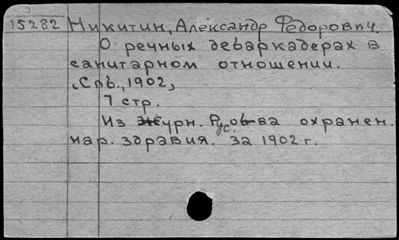 15282 Никитин, Александр Федорович.
О речных дебаркадерах в
санитарном отношении.
[Спб., 1902]
7 стр.
Из журн. Рус. о-ва охранен.
нар. здравия. за 1902 г.